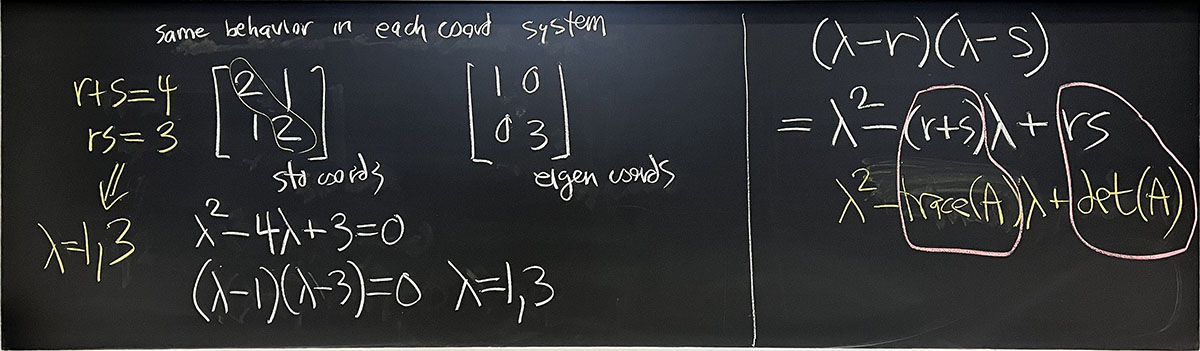 same behavior in each coord system
r+s=4
rs=3
⇓
λ=1,3
[2 1
1 2]
std coords
[1 0
0 3]
eigen coords
λ²-4λ+3=0
(λ-1)(λ-3)=0 λ=1,3
(λ-r)(λ-s)
=λ²-(r+s)λ+rs
λ²-trace(A)λ+det(A)